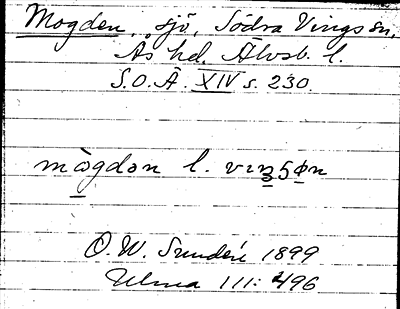 Mogden, sjö, Södra Vings sn,
Ås hd. Älvsb. l.
S.O.Ä. XIV s. 230.
mògdən l.
O. W. Sundén 1899
Ulma 111: 496